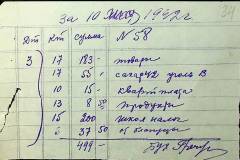 За 10 1942 г
Дт Кт сумма № 58
3 17 183 - товары
17 55 1 сахар 42 уголь В
10 15 - кварт плата
13 8 50 продукты
15 200 школ налог
6 37 50
499 - Бух